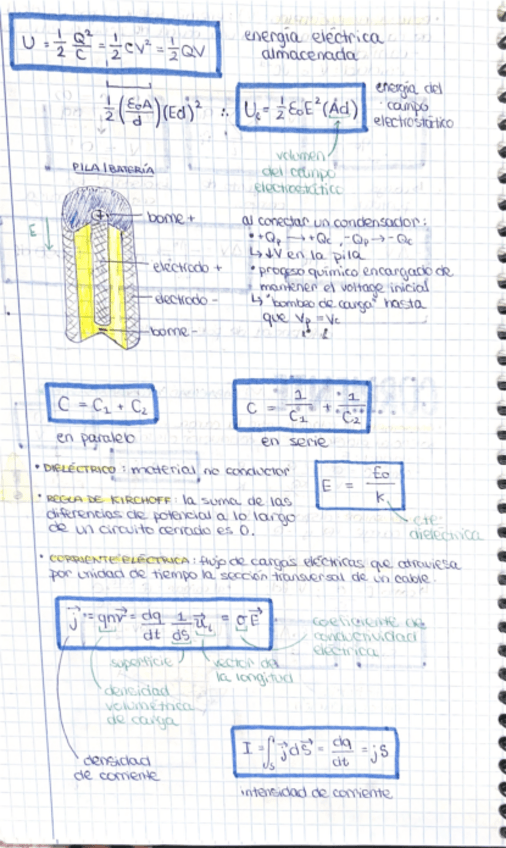 U = 1/2 Q²/C = 1/2 CV² = 1/2 QV
energía eléctrica
almacenada
1/2 (ε₀A/d)(Ed)² ∴ Uₑ = 1/2 ε₀E²(Ad)
energía del
campo
electrostático
volumen
del campo
electrostático
PILA/BATERÍA
E
+
borne +
eléctrodo +
electrodo -
borne -
al conectar un condensador:
• +Qp → +Qc, -Qp → -Qc
↳ ↓V en la pila
• proceso químico encargado de
mantener el voltage inicial
↳ "bombeo de carga" hasta
que Vp = Vc
C = C₁ + C₂
en paralelo
C = 1/C₁ + 1/C₂
en serie
• DIELÉCTRICO: material no conductor
E = E₀/k
cte
dieléctrica
• REGLA DE KIRCHOFF: la suma de las
diferencias de potencial a lo largo
de un circuito cerrado es 0.
• CORRIENTE ELÉCTRICA: flujo de cargas eléctricas que atraviesa
por unidad de tiempo la sección transversal de un cable.
j⃗ = qnv⃗ = dq/dt 1/dS u⃗ₗ = σE⃗
coeficiente de
conductividad
eléctrica
superficie
vector de
la longitud
densidad
volumétrica
de carga
densidad
de corriente
I = ∫ₛ j⃗dS⃗ = dq/dt = jS
intensidad de corriente